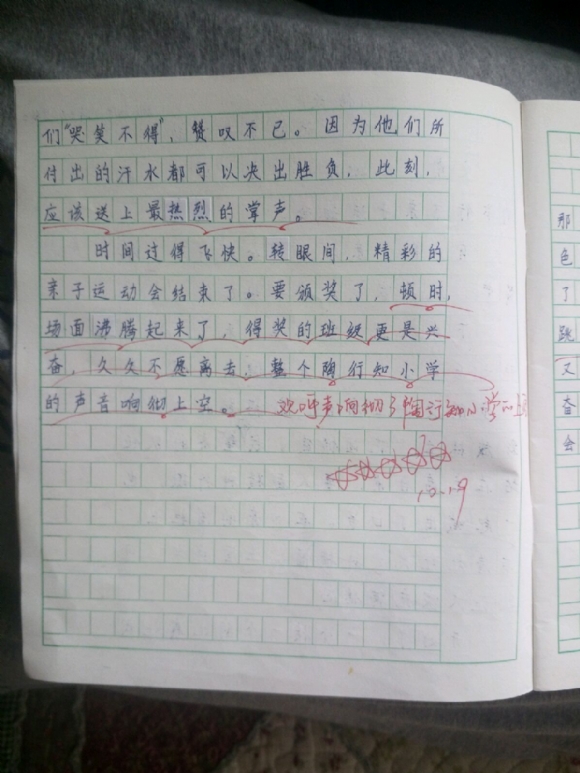 们“哭笑不得”，赞叹不已。因为他们所
付出的汗水都可以决出胜负，此刻，
应该送上最热烈的掌声。
时间过得飞快。转眼间，精彩的
亲子运动会结束了。要颁奖了，顿时，
场面沸腾起来了，得奖的班级更是兴
奋，久久不愿离去，整个陶行知小学
的声音响彻上空。 欢呼声响彻了陶行知小学的上
10.19
那
色
了
跳
又
查
会